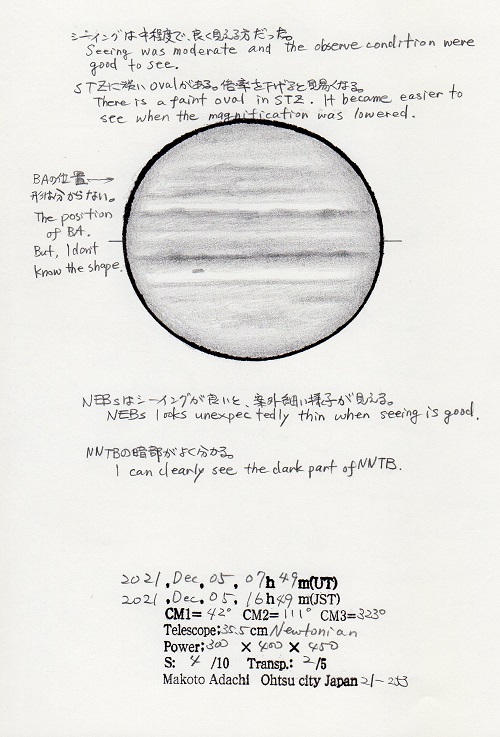 シーイングは中程度で、良く見える方だった。
Seeing was moderate and the observe condition were
good to see.
STZに淡いovalがある。倍率を下げると見易くなる。
There is a faint oval in STZ. It became easier to
see when the magnification was lowered.
BAの位置→
形は分からない。
The position
of BA.
But, I don't
know the shape.
NEBsはシーイングが良いと、案外細い様子が見える。
NEBs looks unexpectedly thin when seeing is good.
NNTBの暗部がよく分かる。
I can clearly see the dark part of NNTB.
2021, Dec, 05, 07h 49m(UT)
2021, Dec, 05, 16h 49m(JST)
CM1= 42° CM2= 111° CM3= 323°
Telescope; 35.5 cm Newtonian
Power; 300 × 400 × 450
S: 4 /10 Transp.: 2/5
Makoto Adachi Ohtsu city Japan 21-253